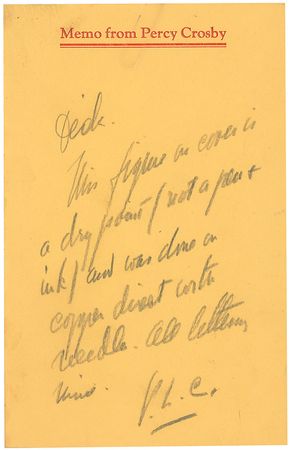 Memo from Percy Crosby
Dick.
This figure on cover is
a dry point (not a pen &
ink) and was done on
copper direct with
needle. All lettering
mine.
P. L. C.